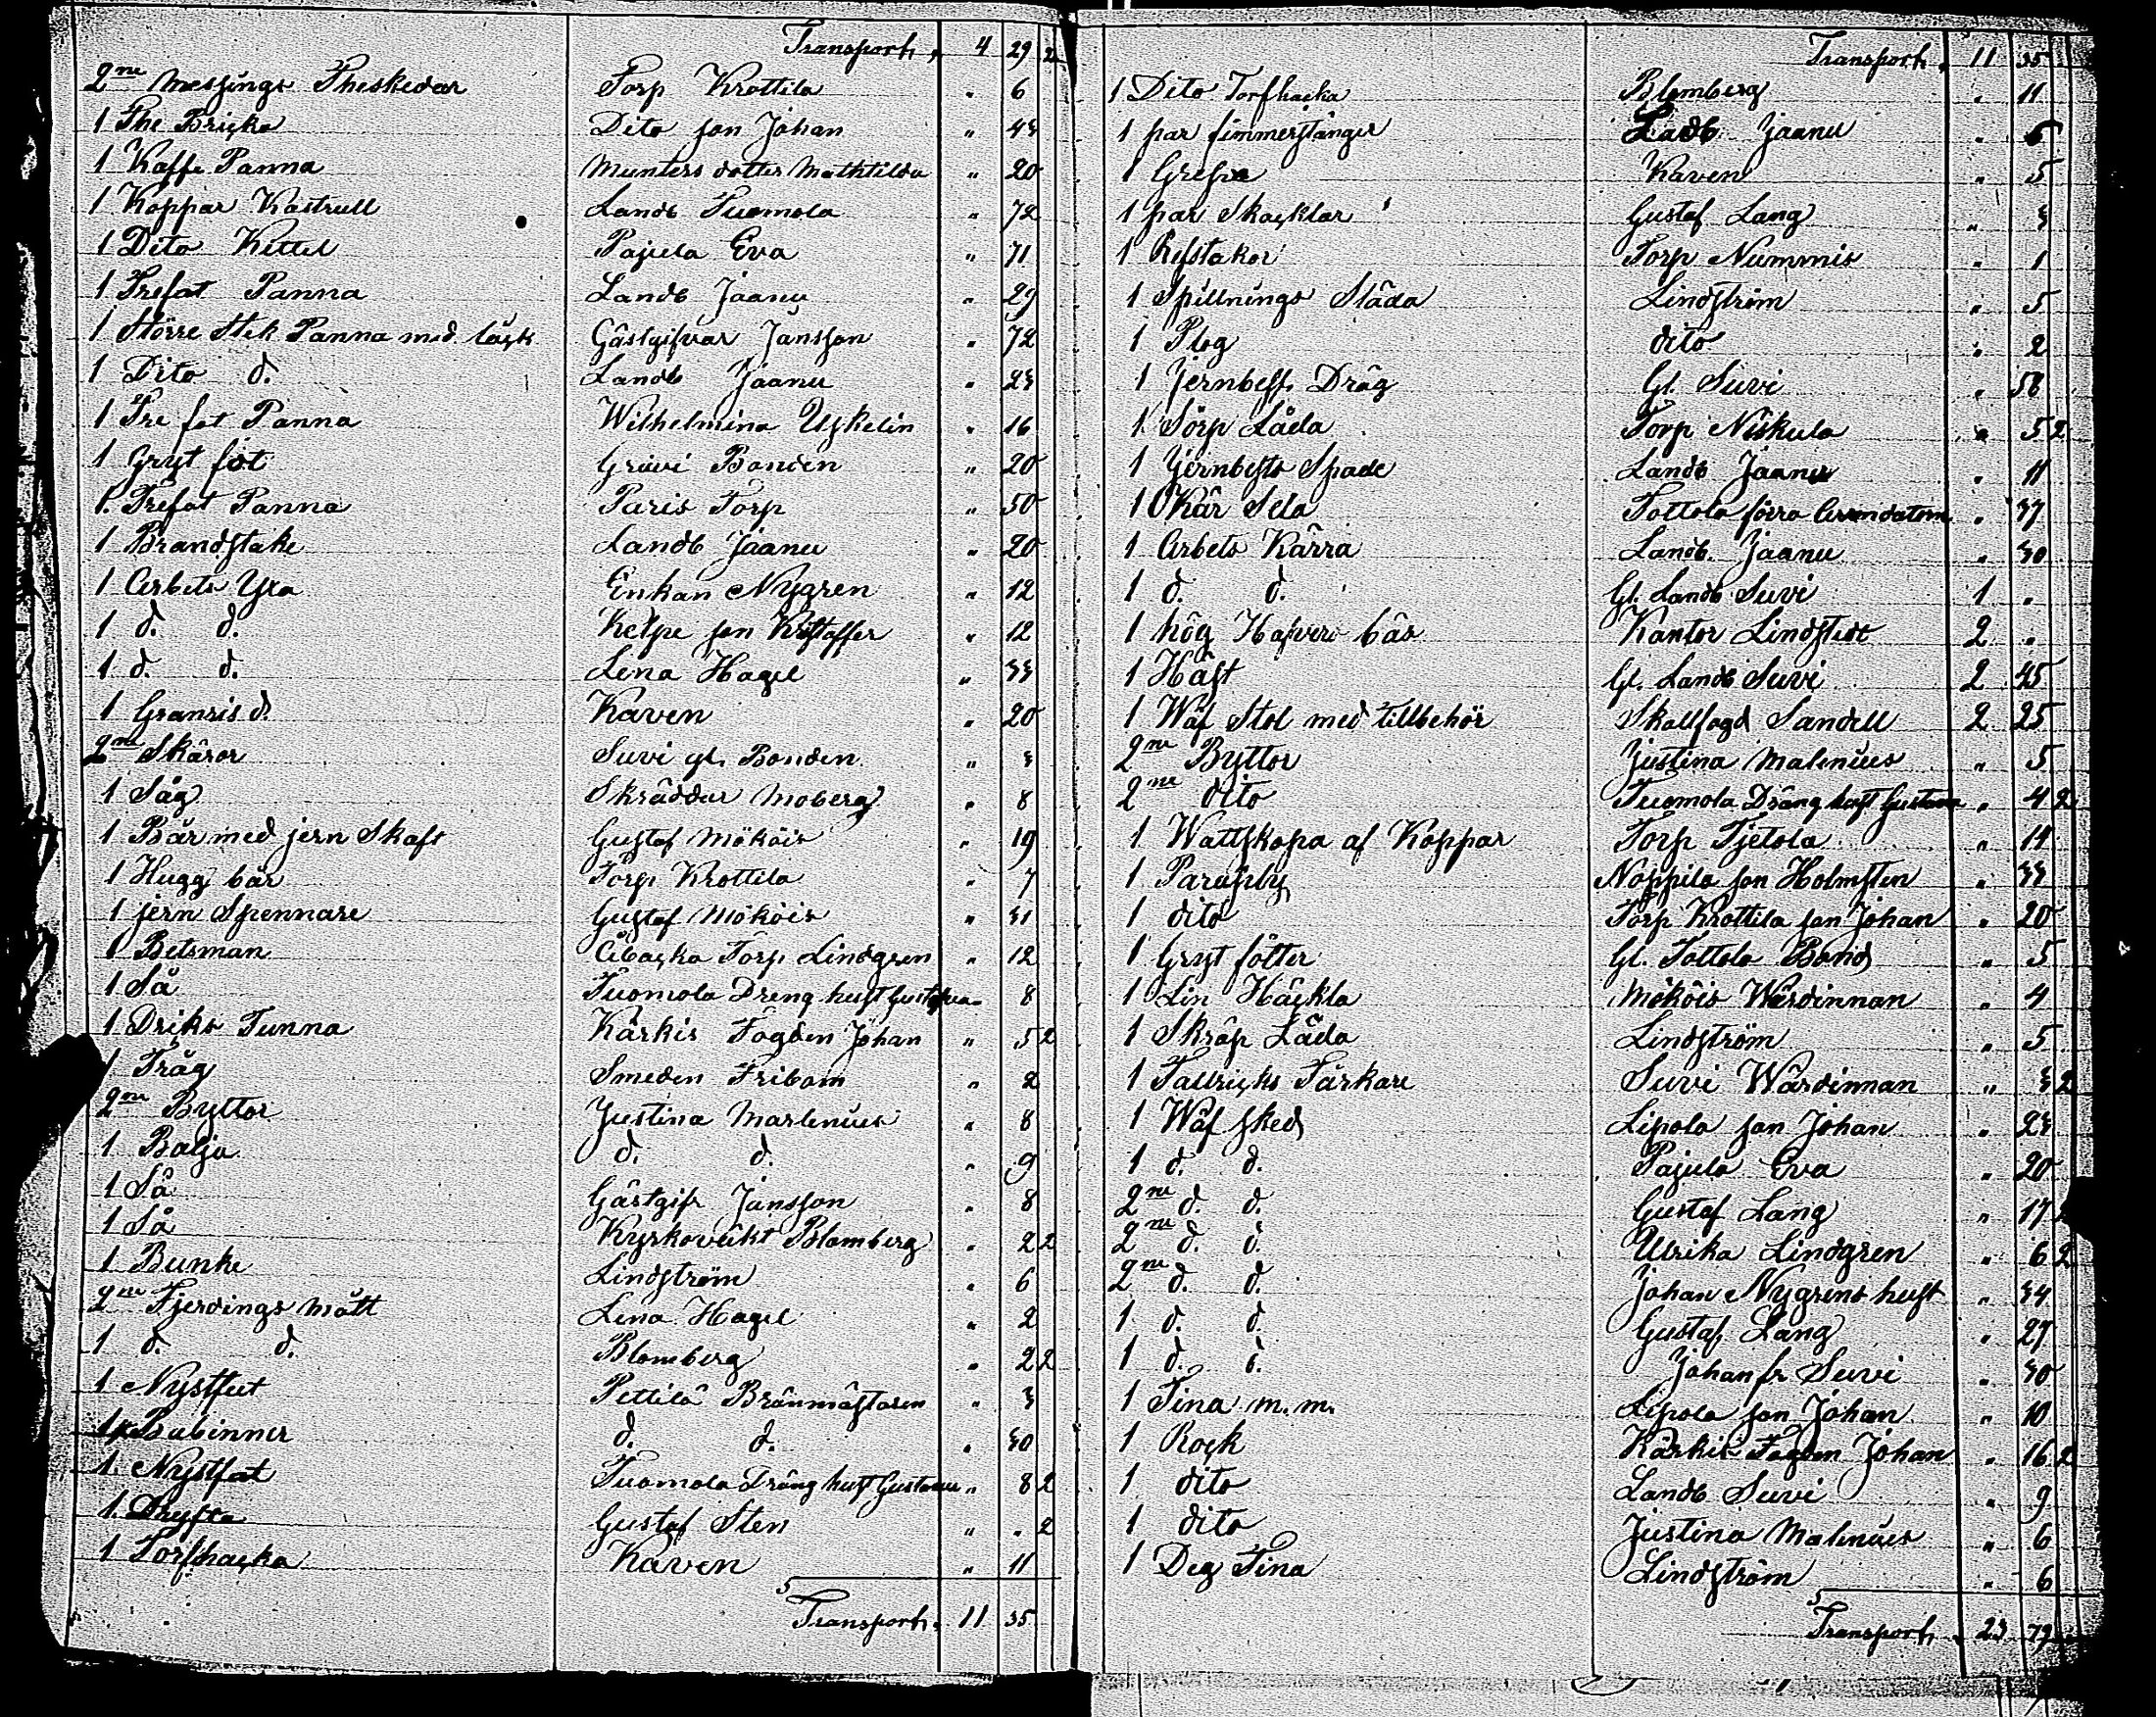 Transport, 4 29 2
2ne Messings Theskedar Torp Krottila " 6
1 The Bricka Dito son Johan " 43
1 Kaffe Panna Munters dotter Mathtilda " 20
1 Koppar Kastrull Landb Tuomola " 72
1 Dito Kittel Pajula Eva " 71
1 Trefot Panna Landb Jaanu " 29
1 Större Stek Panna med låck Gästgifvar Jansson " 72
1 Dito d. Landb Jaanu " 23
1 Tre fot Panna Wilhelmina Uskelin " 16
1 Gryt fot Griivi Bonden " 20
1. Trefot Panna Paris Torp " 50
1 Brandstake Landb Jaanu " 20
1 Arbets Yxa Enkan Nygren " 12
1 d. d. Kelpe son Kristoffer " 12
1 d. d. Lena Hagel " 33
1 Gransis d. Kaven " 20
2ne Skäror Suvi gl. Bonden " 3
1 Såg Skräddar Moberg " 8
1 Bår med jern Skaft Gustaf Mököis " 19
1 Hugg bår Torp Krottila " 7
1 jern Spennare Gustaf Mököis " 31
1 Betsman Åbacka Torp Lindgren " 12
1 Så Tuomola Dreng hust Gustafva " 8
1 Driks Tunna Kärkis Fogden Johan " 5 2
1 Tråg Smeden Fribom " 2
2ne Byttor Justina Marlenius " 8
1 Balja d. d. " 9
1 Så Gästgifr Jansson " 8
1 Så Kyrkoväkt Blomberg " 2 2
1 Bunke Lindström " 6
2ne Fjerdings mått Lena Hagel " 2
1 d. d. Blomberg " 2 2
1 Nystfut Pettilä Bränmästaren " 3
14 Bubinner d. d. " 30
1. Nystfat Tuomola Dräng hust Gustava " 8 2
1. Dryfta Gustaf Sten " " 2
1 Torfhacka Kaven " 11
Transport, 11 35
Transport, 11 35
1 Dito Torfhacka Blomberg " 11
1 par fimmerstänger Landb Jaanu " 5
1 Grefva Kaven " 5
1 par Skacklar Gustaf Lang " 3
1 Refstakor Torp Nummis " 1
1 Spillnings Släda Lindström " 5
1 Plog dito " 2
1 Jernbesl. Dräg Gl. Suvi " 56
1 Sörp Låda Torp Niskula " 5 2
1 Jernbesls Spade Landb Jaanu " 11
1 Kär Sela Tottola förra Arrendatorn " 37
1 Arbets Kärra Landb. Jaanu " 30
1 d. d. Gl. Landb Suvi 1 "
1 hög Hafver bås Kantor Lindstedt 2 "
1 Häst Gl. Landb Suvi 2 45
1 Wäf Stol med tillbehör Skallfogd Sandell 2 25
2ne Byttor Justina Malenius " 5
2ne dito Tuomola Dräng hust Gustava " 4 2
1 Wattskopa af Koppar Torp Tjetola " 14
1 Paraply Noppila son Holmsten " 33
1 dito Torp Krottila son Johan " 20
1 Gryt fötter Gl. Tottola Bond " 5
1 Lin Häckla Mököis Wärdinnan " 4
1 Skräp Låda Lindström " 5
1 Tallricks Tårkare Suvi Wärdinnan " 3 2
1 Wäf sked Lipola son Johan " 23
1 d. d. Pajula Eva " 20
2ne d. d. Gustaf Lang " 17 2
2ne d. d. Ulrika Lindgren " 6 2
2ne d. d. Johan Nygrens hust " 34
1 d. d. Gustaf Lang " 27
1 d. d. Johan fr Suvi " 30
1 Tina m.m. Lipola son Johan " 10
1 Rock Kärkis Fogden Johan " 16 2
1 dito Landb Suvi " 9
1 dito Justina Malenius " 6
1 Deg Tina Lindström " 6
Transport, 23 79